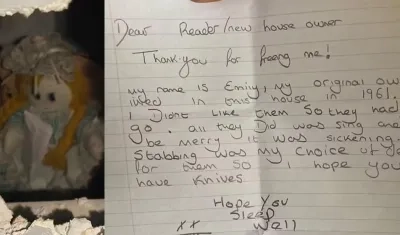 Dear Reader/new house owner
Thank you for freeing me!
my name is Emily, my original ow
lived in this house in 1961.
I Didnt Like them so they had
go. all they Did was sing and
be merry it was sickening.
Stabbing was my choice of d
for them so I hope you
have knives.
Hope You
Sleep
Well
xx